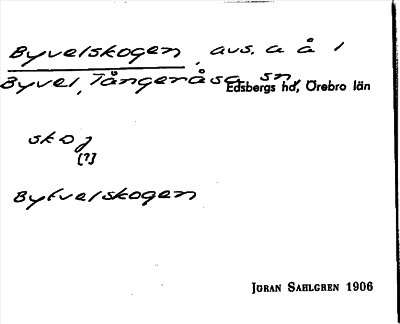 Byvelskogen, avs. a å 1
Byvel, Tångeråsa sn,
Edsbergs hd, Örebro län
skog
[?]
Bytvelskogen
JÖRAN SAHLGREN 1906